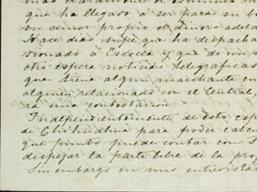 que ha llegado á ser para su
un amor propio el
Hace días supe que ha despacha
sionado á Escocia y que de un
otro espera noticias telegráficas
que tiene algun marchante en
alguien relacionado con el Central,
rá una contestacion.
Independientemente de esto espe
de Chihuahua para poder calcu
que pronto puede contar con
despejar la parte libre de la pro
Sin embargo en mis entrevistas